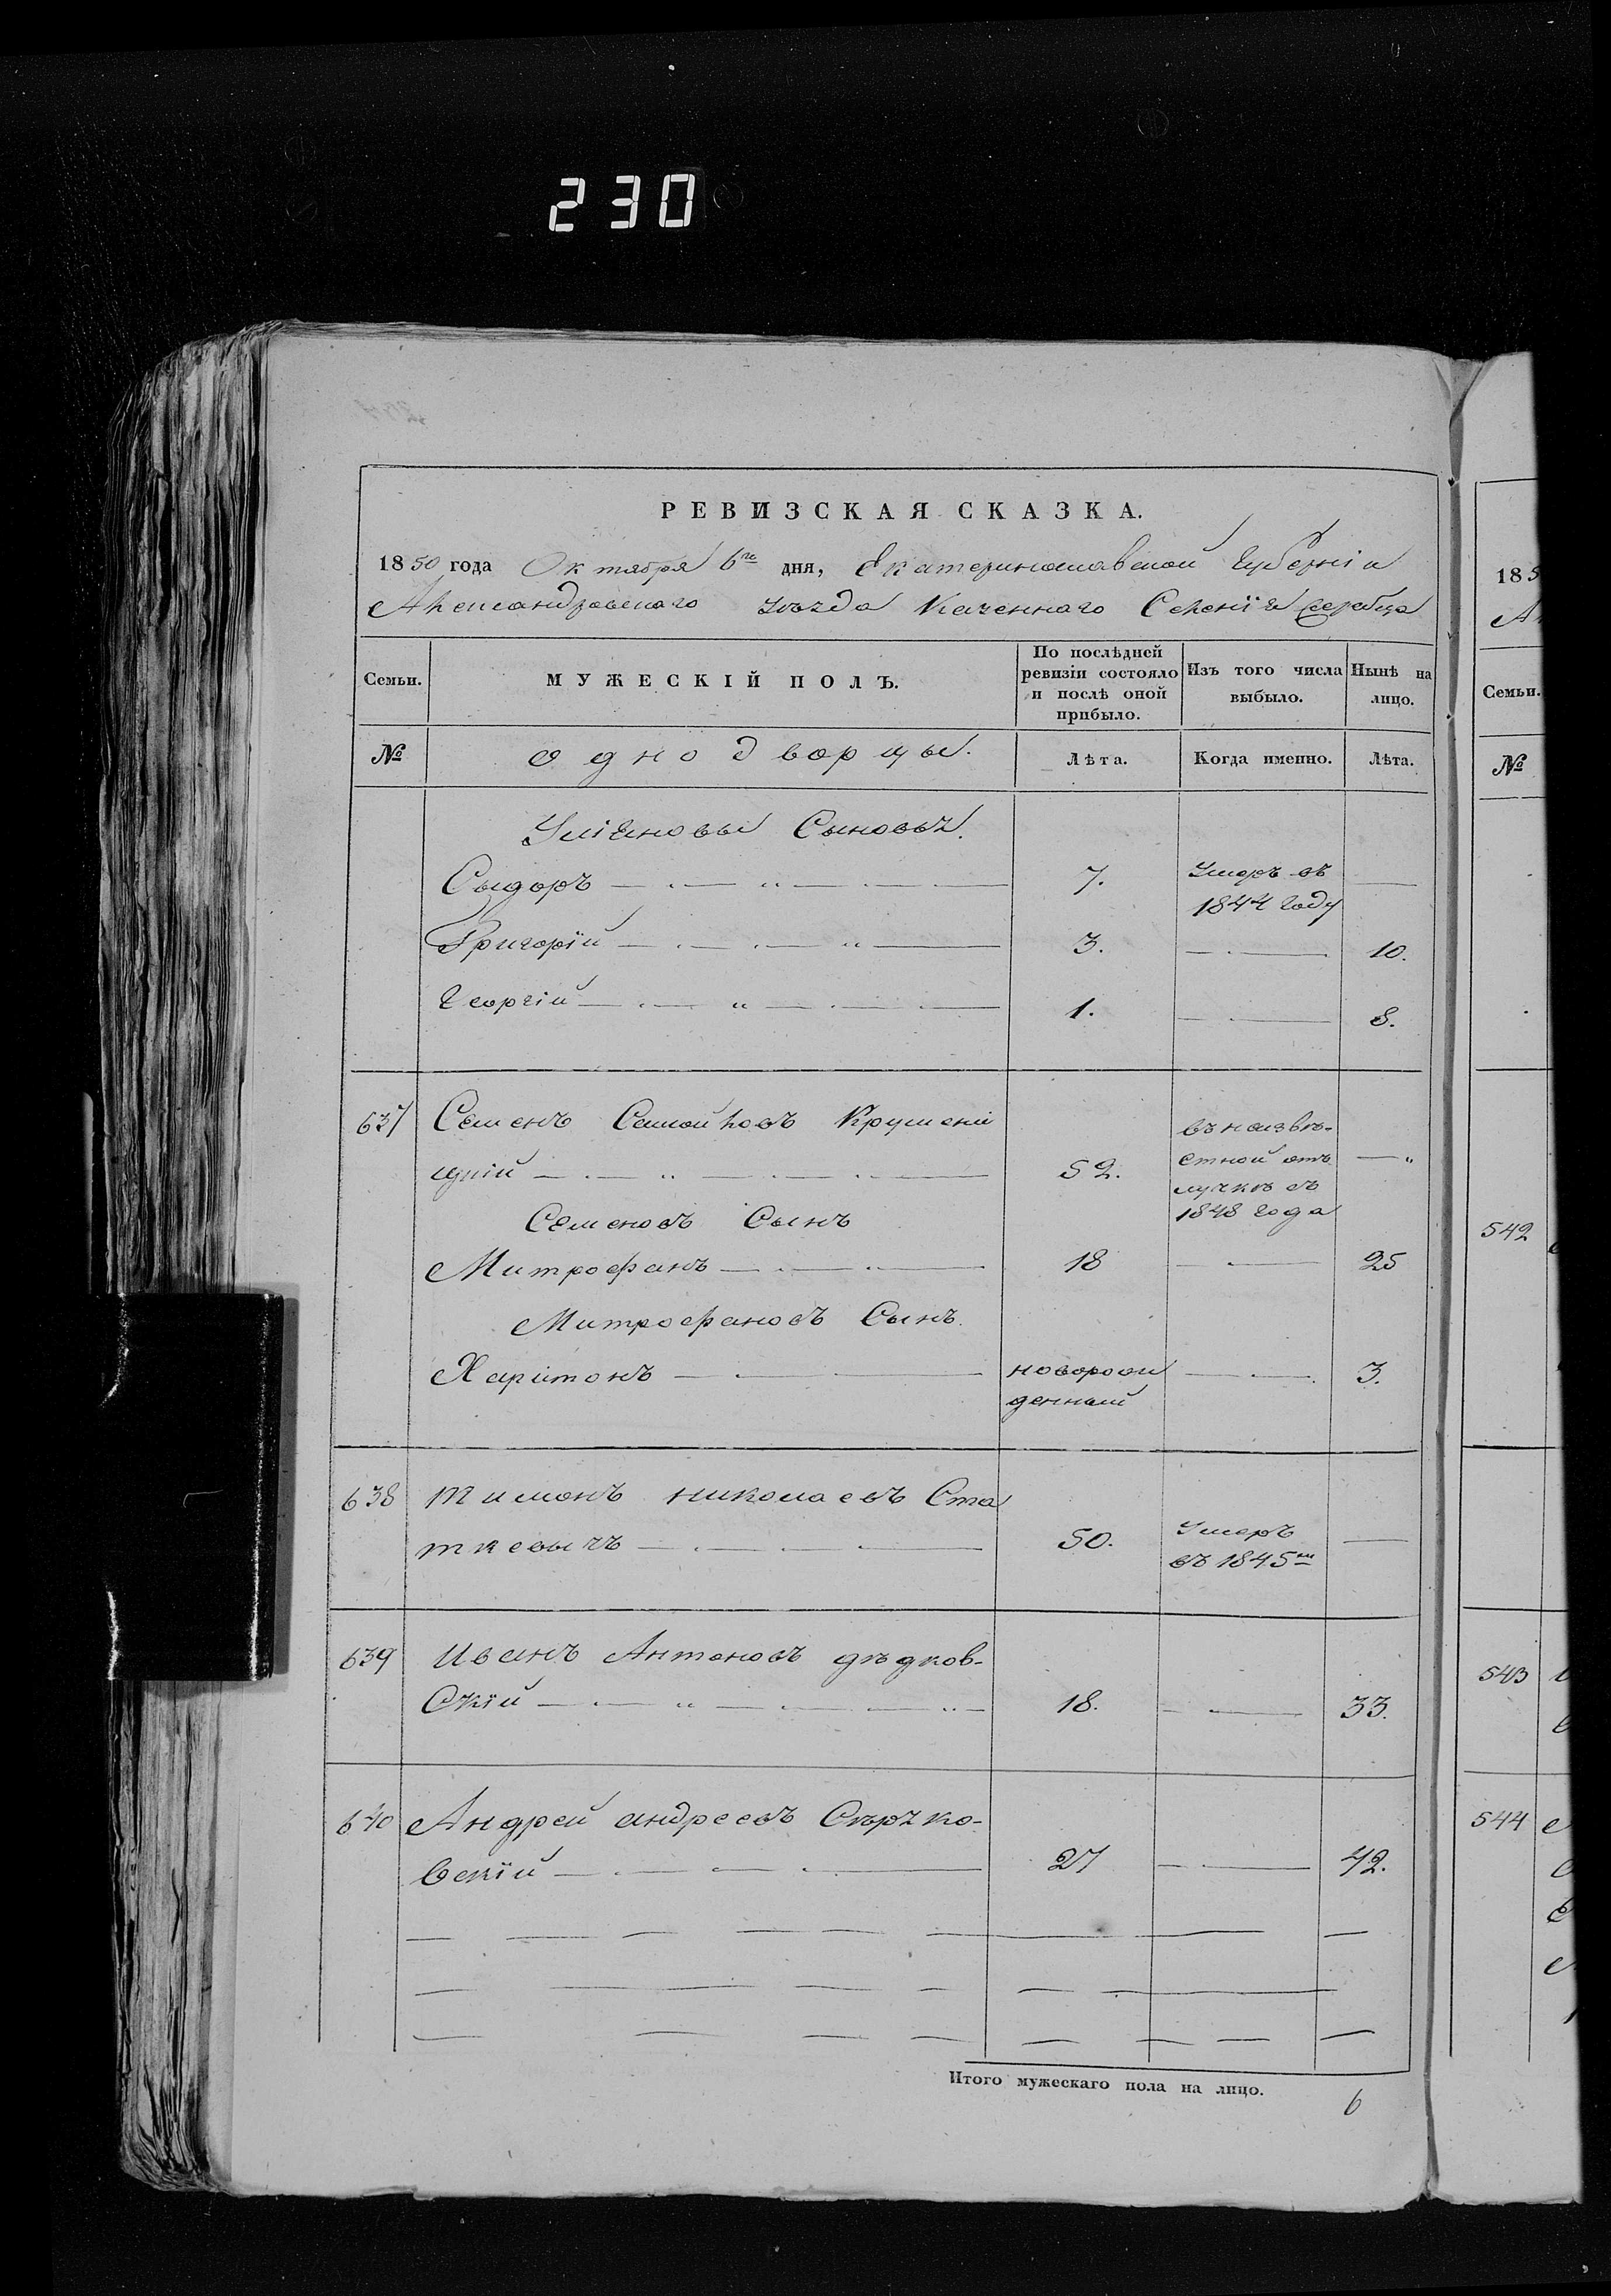 230
РЕВИЗСКАЯ СКАЗКА.
1850 года Октября 6го дня, Екатеринославской Губерніи
Александровскаго уѣзда Казеннаго Селенія
Семьи.
МУЖЕСКІЙ ПОЛЪ.
По послѣдней ревизіи состояло и послѣ оной прибыло.
Изъ того числа выбыло.
Нынѣ на лицо.
№
однодворцы.
Лѣта.
Когда именно.
Лѣта.
Сыновья.
Сыдоръ 7. Умеръ въ
1844 году
Григорій 3. 10.
Георгій 1. 8.
637 Семенъ
52. въ неизвѣ-
стной отъ
лучкѣ съ
1848 года
Семеновъ Сынъ
Митрофанъ 18 25
Митрофановъ Сынъ
Харитонъ новорож 3.
денный
638 Тимонъ николаевъ Ста
ткевычъ 50. Умеръ
въ 1845м
639 Иванъ Антоновъ дѣдков-
Скій 18. 33.
640 Андрей андреевъ
вскій 27 42.
Итого мужескаго пола на лицо.
6
185
Семьи.
№
542
543
544